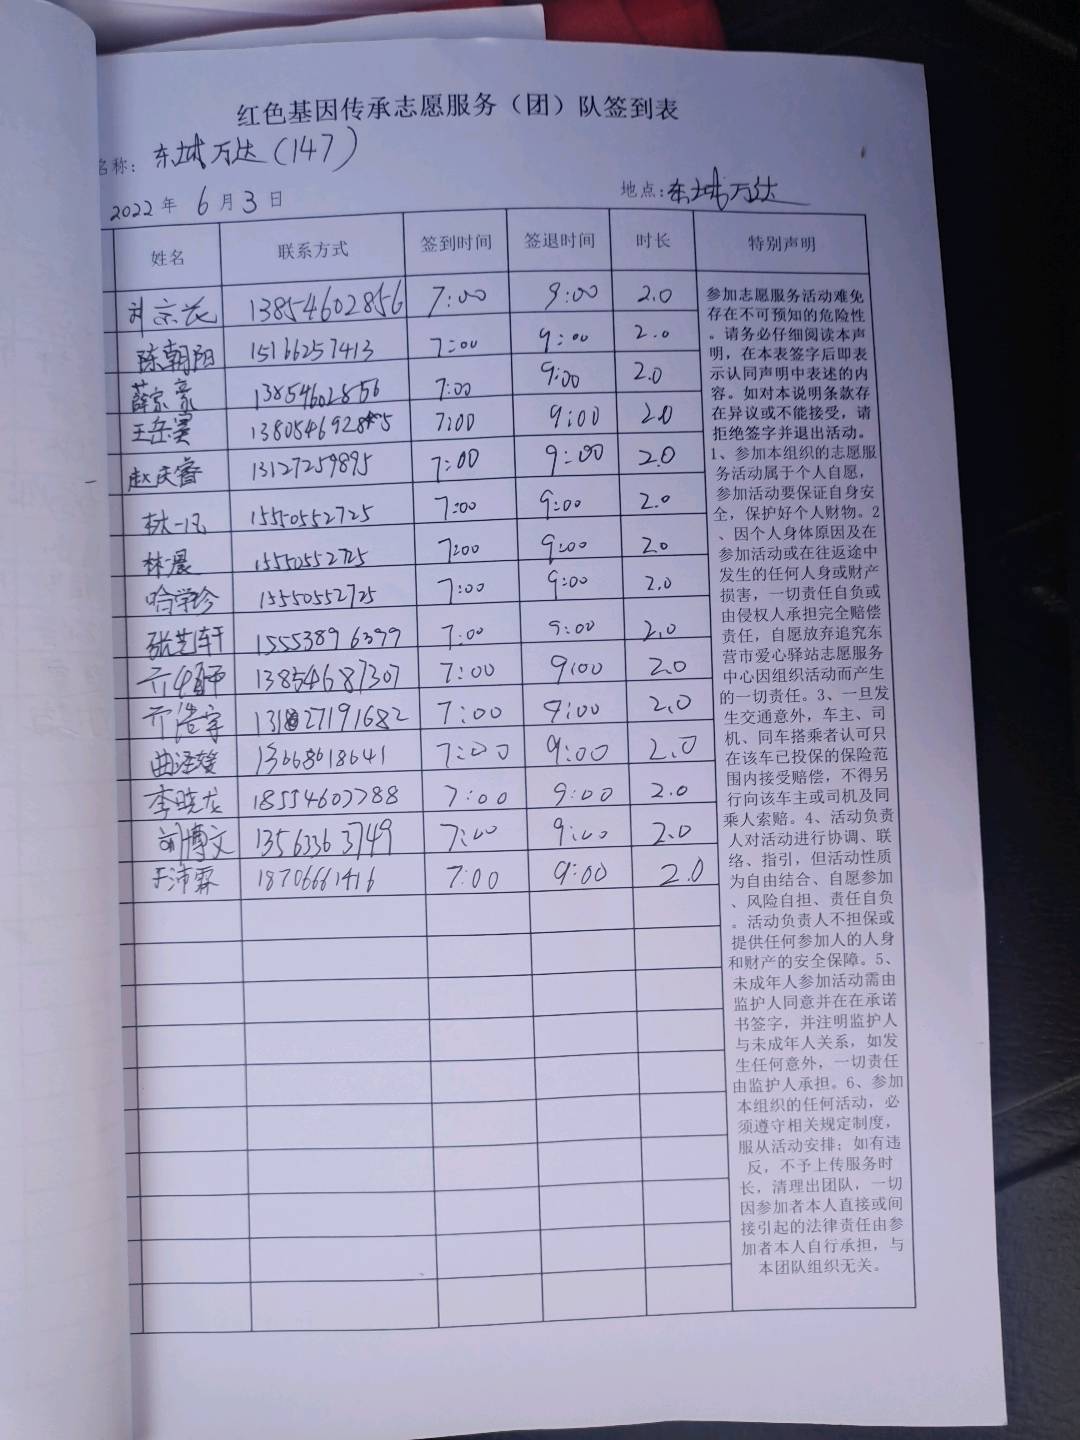 红色基因传承志愿服务（团）队签到表
名称：东城万达（147）
2022年 6月3日 地点：东城万达
姓名 联系方式 签到时间 签退时间 时长 特别声明
13854602856 7:00 9:00 2.0
陈朝阳 15166257413 7:00 9:00 2.0
薛宗豪 13854602856 7:00 9:00 2.0
7:00 9:00 2.0
赵庆睿 13127259895 7:00 9:00 2.0
林一凡 15550552725 7:00 9:00 2.0
林晨 15550552725 7:00 9:00 2.0
哈学珍 15550552725 7:00 9:00 2.0
张艺轩 15553896399 7:00 9:00 2.0
13854687307 7:00 9:00 2.0
7:00 9:00 2.0
13668618641 7:00 9:00 2.0
李晓龙 18554607788 7:00 9:00 2.0
博文 13563363749 7:00 9:00 2.0
于沛霖 18706661416 7:00 9:00 2.0
参加志愿服务活动难免
存在不可预知的危险性
。请务必仔细阅读本声
明，在本表签字后即表
示认同声明中表述的内
容。如对本说明条款存
在异议或不能接受，请
拒绝签字并退出活动。
1、参加本组织的志愿服
务活动属于个人自愿，
参加活动要保证自身安
全，保护好个人财物。2
、因个人身体原因及在
参加活动或在往返途中
发生的任何人身或财产
损害，一切责任自负或
由侵权人承担完全赔偿
责任，自愿放弃追究东
营市爱心驿站志愿服务
中心因组织活动而产生
的一切责任。3、一旦发
生交通意外，车主、司
机、同车搭乘者认可只
在该车已投保的保险范
围内接受赔偿，不得另
行向该车主或司机及同
乘人索赔。4、活动负责
人对活动进行协调、联
络、指引，但活动性质
为自由结合、自愿参加
、风险自担、责任自负
。活动负责人不担保或
提供任何参加人的人身
和财产的安全保障。5、
未成年人参加活动需由
监护人同意并在在承诺
书签字，并注明监护人
与未成年人关系，如发
生任何意外，一切责任
由监护人承担。6、参加
本组织的任何活动，必
须遵守相关规定制度，
服从活动安排；如有违
反，不予上传服务时
长，清理出团队，一切
因参加者本人直接或间
接引起的法律责任由参
加者本人自行承担，与
本团队组织无关。